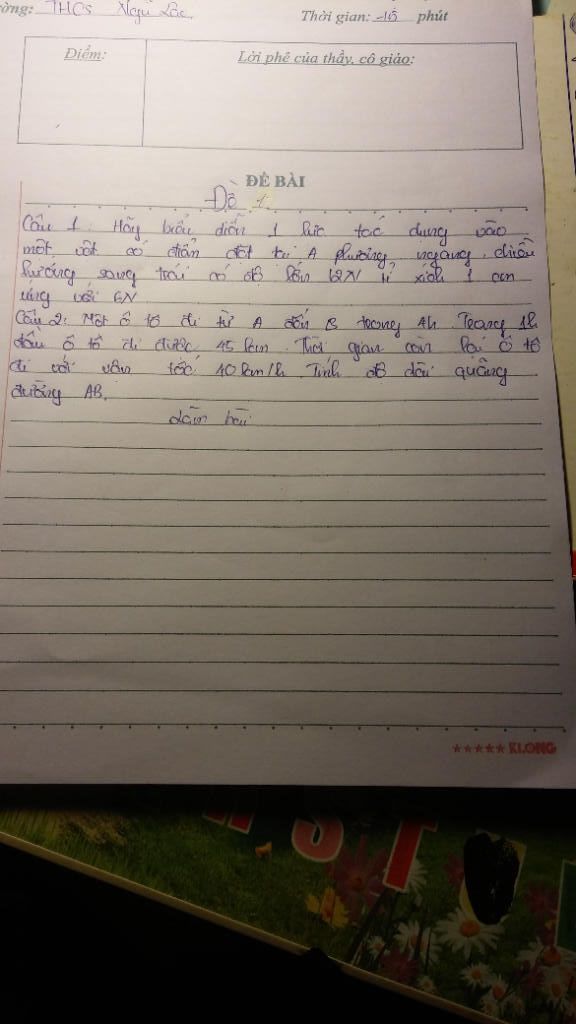 ờng: THCS Ngũ Lão Thời gian: 15 phút
Điểm: Lời phê của thầy, cô giáo:
ĐỀ BÀI
Đề 1.
Câu 1: Hãy biểu diễn 1 lực tác dụng vào
một vật có điểm đặt tại A phương ngang, chiều
hướng sang trái có độ lớn 12N tỉ xích 1 cm
ứng với 6N
Câu 2: Một ô tô đi từ A đến B trong 4h. Trong 1h
đầu ô tô đi được 45 km. Thời gian còn lại ô tô
đi với vận tốc 40 km/h. Tính độ dài quãng
đường AB.
Làm bài
★★★★★ KLONG
S T